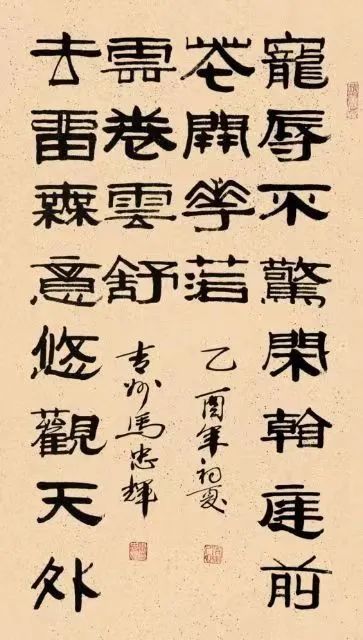 寵辱不驚閑翰庭前
花開花落
乙酉年初夏
去留無意悠觀天外
雲卷雲舒
吉州馬忠輝